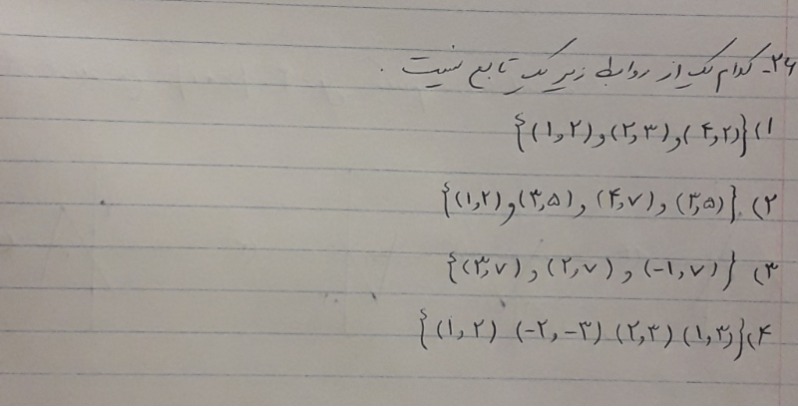 ۲۶- کدام یک از روابط زیر یک تابع نیست.
۱) {(۱,۲),(۲,۳),(۴,۲)}
۲) {(۱,۲),(۳,۵),(۴,۷),(۳,۵)}
۳) {(۳,۷),(۲,۷),(-۱,۷)}
۴) {(۱,۲) (-۲,-۳) (۲,۳) (۱,۳)}